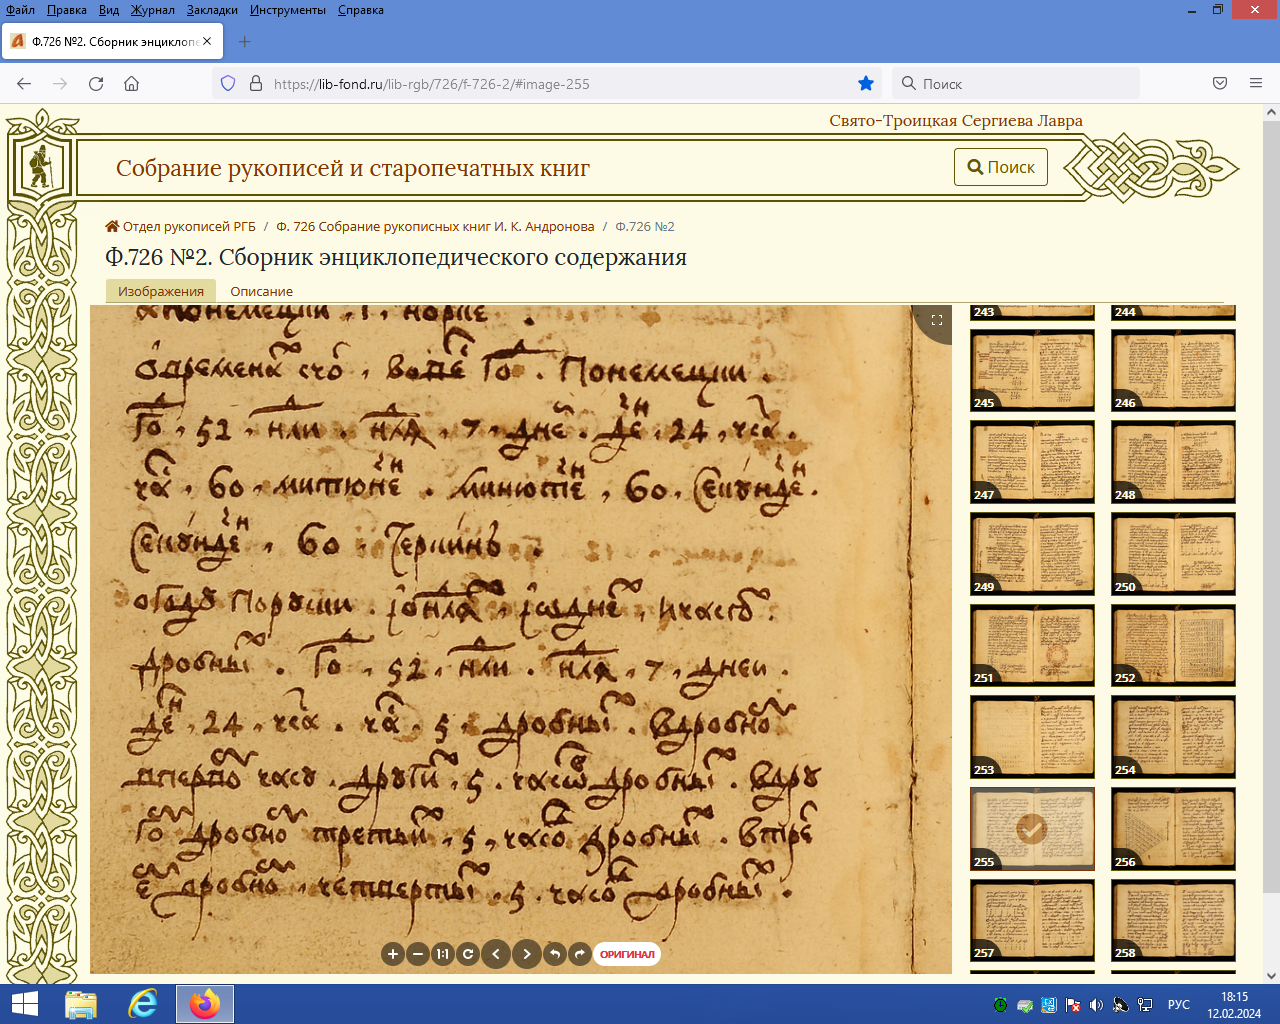 Файл Правка Вид Журнал Закладки Инструменты Справка
Ф.726 №2. Сборник энциклопе
https://lib-fond.ru/lib-rgb/726/f-726-2/#image-255
Поиск
Свято-Троицкая Сергиева Лавра
Собрание рукописей и старопечатных книг
Поиск
Отдел рукописей РГБ / Ф. 726 Собрание рукописных книг И. К. Андронова / Ф.726 №2
Ф.726 №2. Сборник энциклопедического содержания
Изображения Описание
понемецки
времена, Го. Понемецки.
Го, 52, нли. нля, 7, дне. де, 24, чса.
ча, 60, минюте, 60, секунде.
секунде, 60, терцинъ.
огоду поруски. часо
дробны. Го, 52, нли. нля, 7, днеи.
де, 24, чса, ча, 5 дробны. вдробно
часу. други, 5, часо дробны. вдру
го дробно третьи, 5, часо дробны. втре
е дробно, четверты, 5 часо дробны.
243 244
245 246
247 248
249 250
251 252
253 254
255 256
257 258
1:1
ОРИГИНАЛ
РУС
18:15
12.02.2024